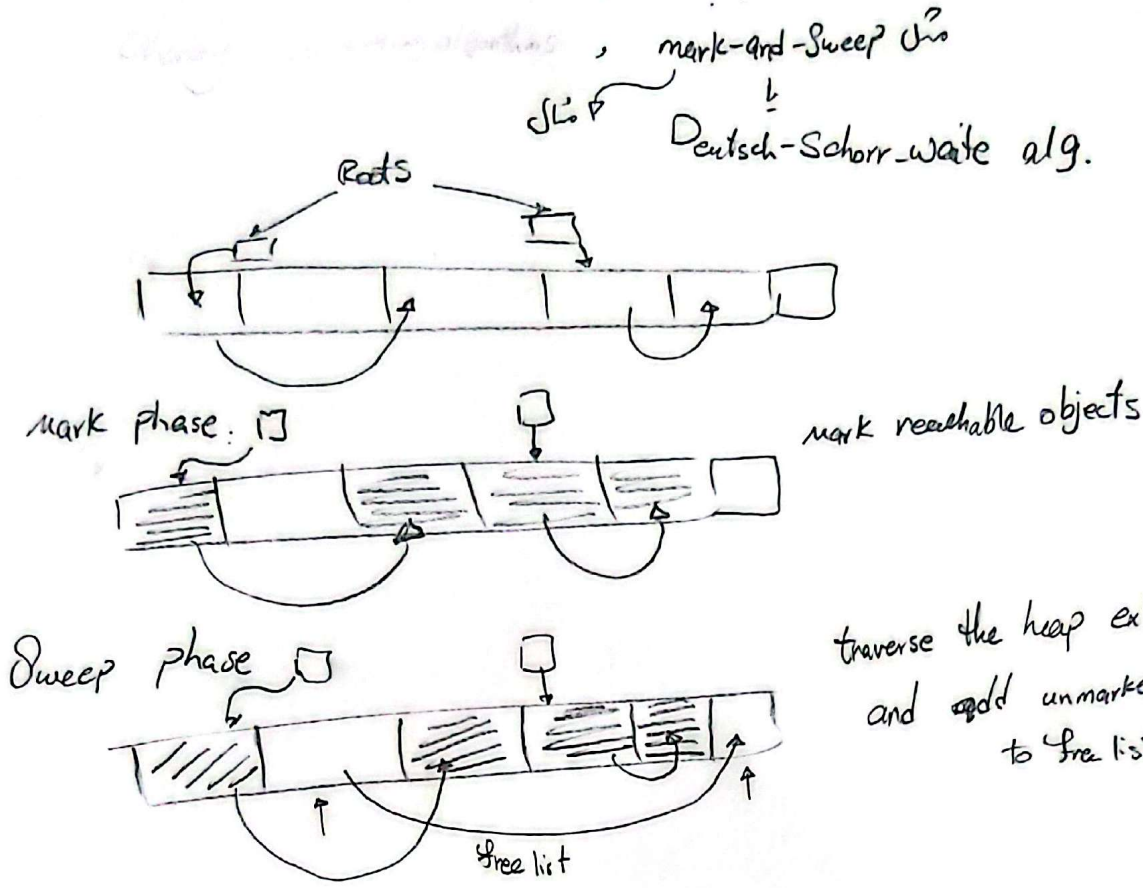 mark-and-Sweep روش
مثال
Deutsch-Schorr-waite alg.
Roots
Mark phase:
mark reachable objects
Sweep phase
traverse the heap ex
and add unmarke
to free lis
free list